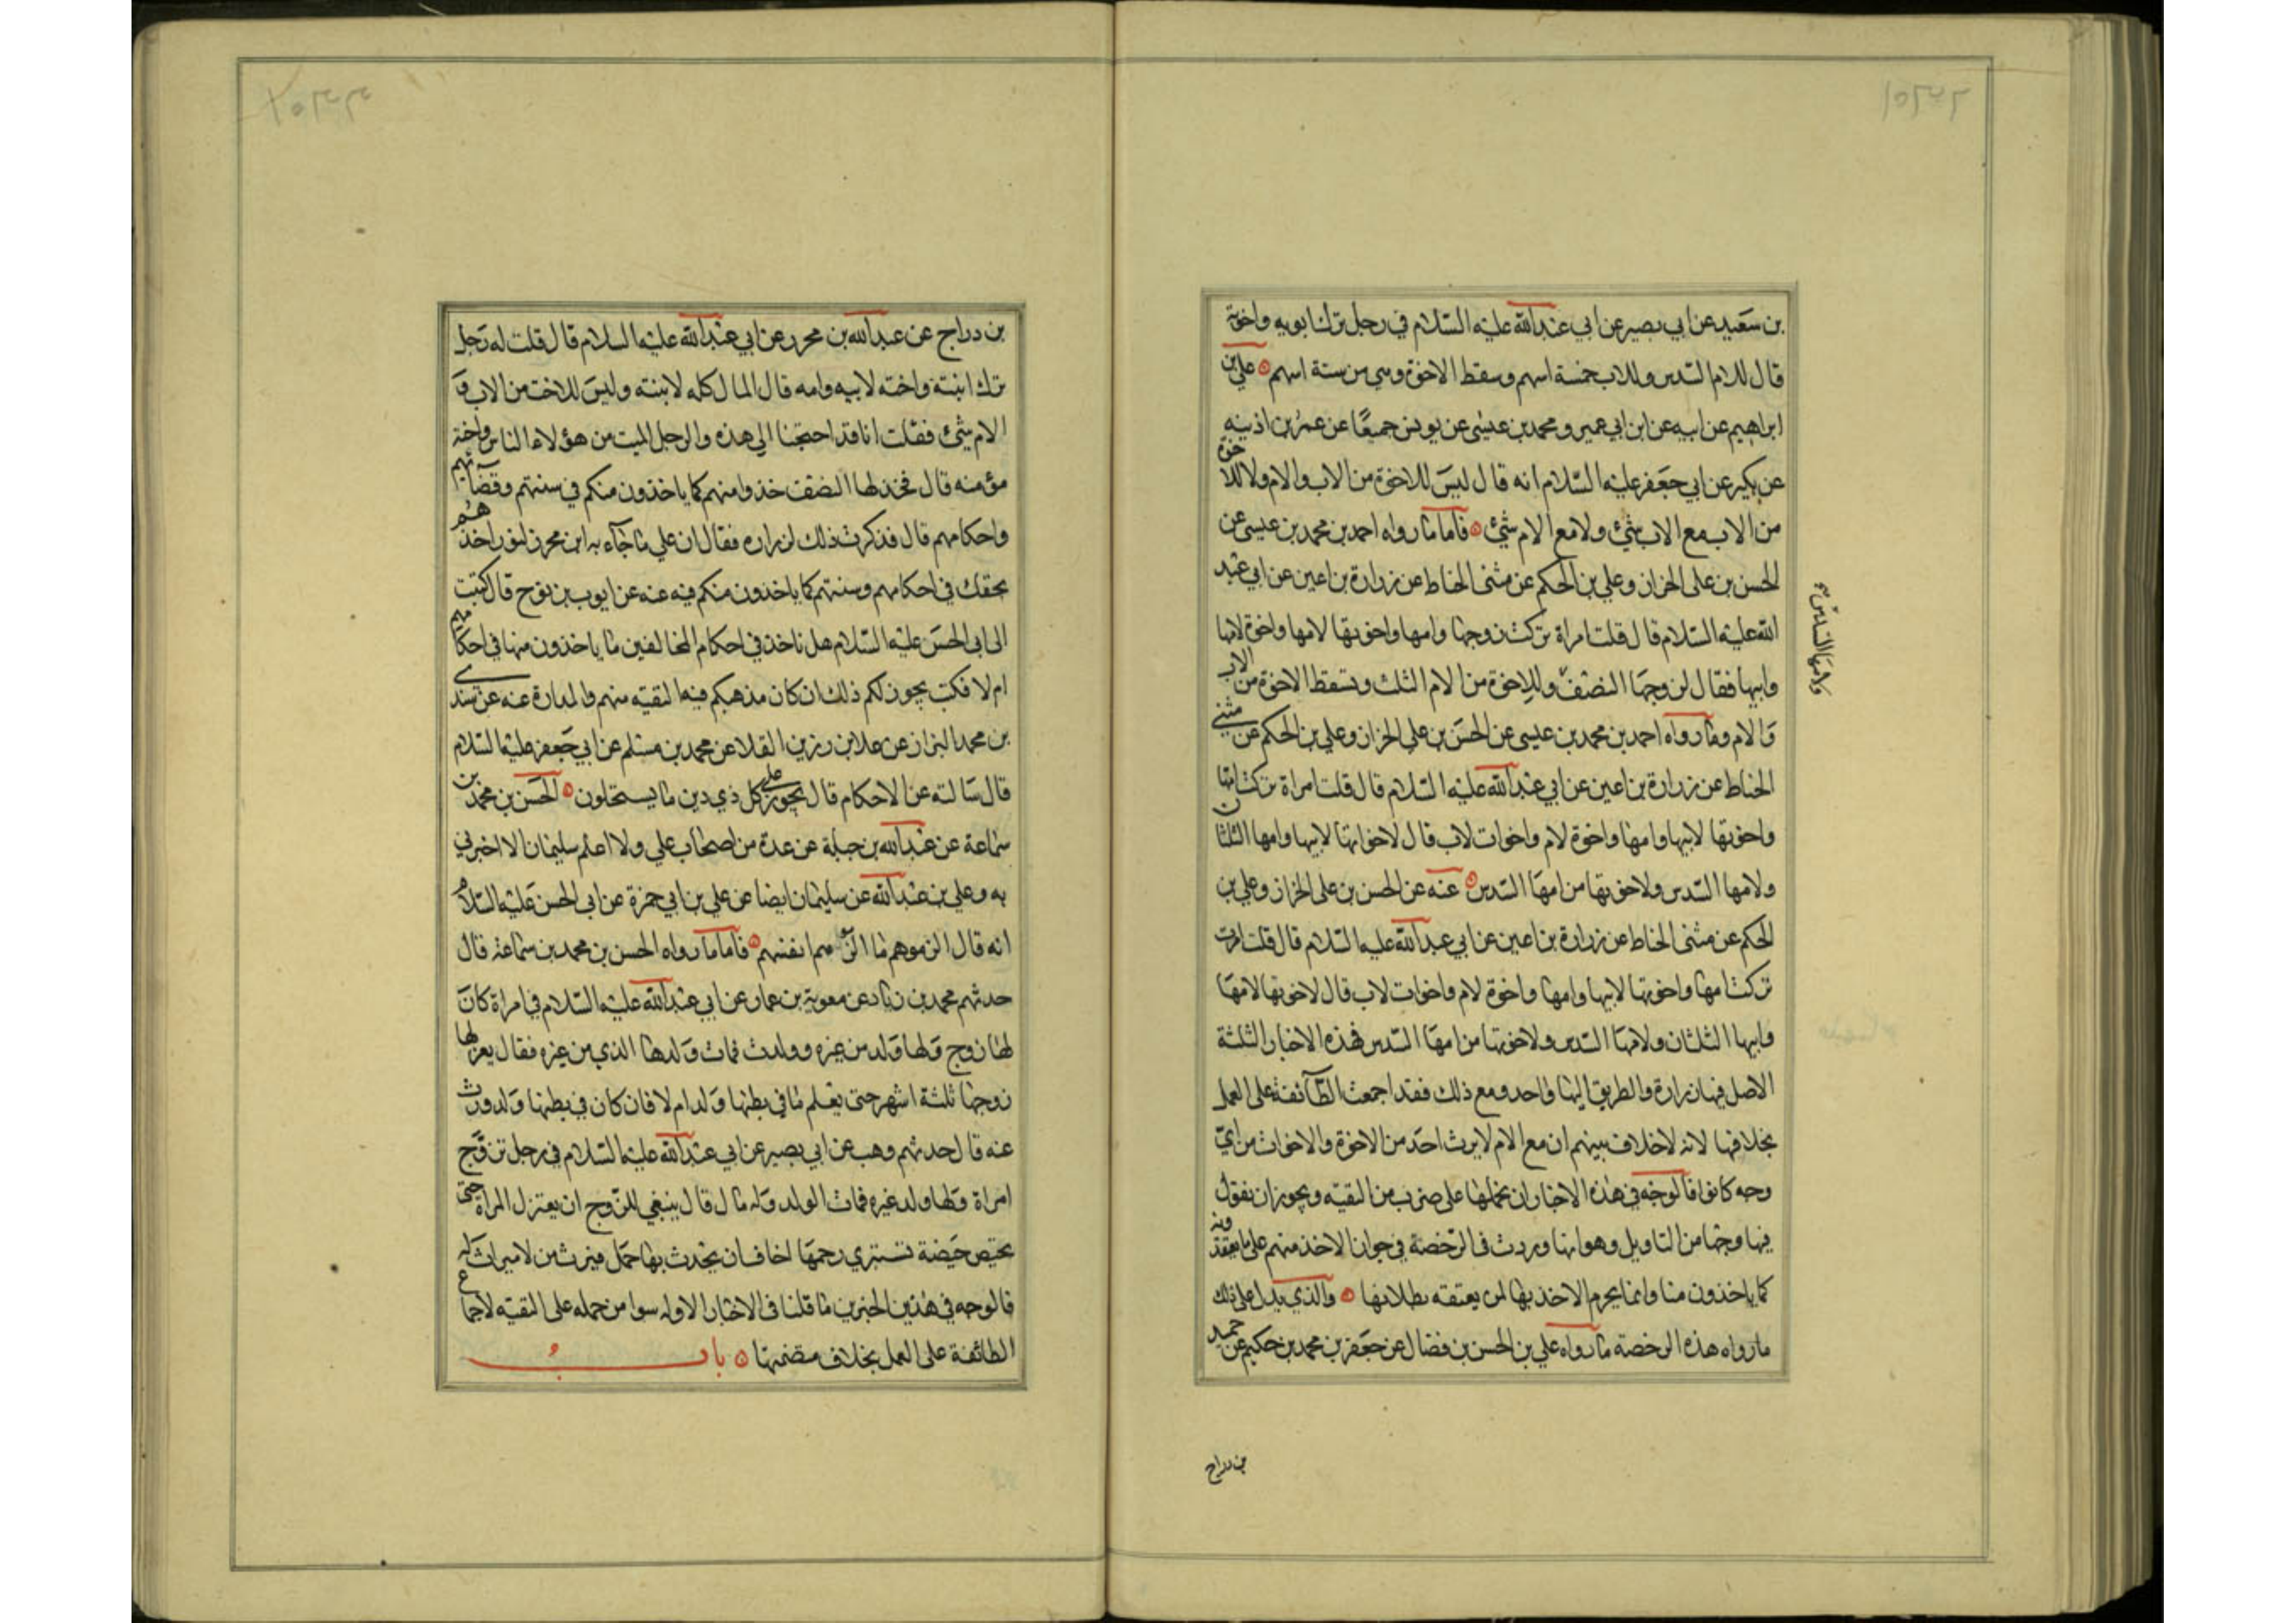 بن سعيد عن ابي بصير عن ابي عبدالله عليه السلام في رجل ترك ابويه واخوته
قال للام السدس وللاب خمسة اسهم وسقط الاخوة وهي من ستة اسهم علي بن
ابراهيم عن ابيه عن ابن ابي عمير و محمد بن عيسى عن يونس جميعا عن عمر بن اذينه
عن بكير عن ابي جعفر عليه السلام انه قال ليس للاخوة من الاب والام ولا للاخوة
من الاب مع الاب شئ ولا مع الام شئ فاما ما رواه احمد بن محمد بن عيسى عن
الحسن بن على الخزاز وعلي بن الحكم عن مثنى الحناط عن زرارة بن اعين عن ابي عبد
الله عليه السلام قال قلت امراة تركت زوجها وامها واخوتها لامها واخوة لابيها
وابيها فقال لزوجها النصف وللاخوة من الام الثلث وتسقط الاخوة من الاب
ولامها السدس
والام وما رواه احمد بن محمد بن عيسى عن الحسن بن علي الخزاز وعلي بن الحكم عن مثنى
الحناط عن زرارة بن اعين عن ابي عبدالله عليه السلام قال قلت امراة تركت امها
واخوتها لابيها وامها واخوة لام واخوات لاب قال لاخواتها لابيها وامها الثلثان
ولامها السدس ولاخوتها من امها السدس عنه عن الحسن بن على الخزاز وعلي بن
الحكم عن مثنى الحناط عن زرارة بن اعين عن ابي عبدالله عليه السلام قال قلت امراة
تركت امها واخوتها لابيها وامها واخوة لام واخوات لاب قال لاخوتها لامها
وابيها الثلثان ولامها السدس ولاخوتها من امها السدس فهذه الاخبار الثلثة
الاصل فيها زرارة والطريق اليها واحد ومع ذلك فقد اجمعت الطائفة على العمل
بخلافها لانه لاخلاف بينهم ان مع الام لايرث احد من الاخوة والاخوات من اي
وجه كانوا فالوجه في هذه الاخبار ان نحملها على ضرب من التقيه ويجوز ان نقول
فيها وجها من التاويل وهو انها وردت في الرخصة في جواز الاخذ منهم على ما يعتقدونه
كما ياخذون منا وانما يحرم الاخذ بها لمن يعتقد بطلانها والذي يدل على ذلك
ما رواه هذه الرخصة ما رواه علي بن الحسن بن فضال عن جعفر بن محمد بن حكيم عن جميد
بن دراج
بن دراج عن عبدالله بن محرز عن ابي عبدالله عليه السلام قال قلت له رجل
ترك ابنته واخته لابيه وامه قال المال كله لابنته وليس للاخت من الاب و
الام شئ فقلت انا قد احتجنا الي هذه والرجل الميت من هؤلاء الناس واخته
مؤمنه قال فخذ لها النصف خذوا منهم كما ياخذون منكم في سنتهم وقضائهم
واحكامهم قال فذكرت ذلك لزراره فقال ان علي ما جاء به ابن محرز لنورا خذهم
بحقك في احكامهم وسنتهم كما ياخذون منكم فيه عنه عن ايوب بن نوح قال كتبت
الى ابي الحسن عليه السلام هل ناخذ في احكام المخالفين ما ياخذون منا في احكامهم
ام لا فكتب يجوز لكم ذلك ان كان مذهبكم فيه التقيه منهم والمدارة عنه عن سندي
بن محمد البزاز عن علا بن رزين القلا عن محمد بن مسلم عن ابي جعفر عليه السلام
قال سالته عن الاحكام قال يجوز على كل ذي دين ما يستحلون الحسن بن محمد بن
سماعة عن عبدالله بن جبلة عن عدة من اصحاب علي ولا اعلم سليمان الا اخبرني
به وعلي بن عبدالله عن سليمان ايضا عن علي بن ابي حمزة عن ابي الحسن عليه السلام
انه قال الزموهم ما الزموا به انفسهم فاما ما رواه الحسن بن محمد بن سماعة قال
حدثهم محمد بن زياد عن معوية بن عمار عن ابي عبدالله عليه السلام في امراة كان
لها زوج ولها ولد من غيره وولدت فمات ولدها الذي من غيره فقال يعزلها
زوجها ثلثة اشهر حتى يعلم ما في بطنها ولد ام لا فان كان في بطنها ولد ورث
عنه قال حدثهم وهب عن ابي بصير عن ابي عبدالله عليه السلام في رجل تزوج
امراة ولها ولد غيره فمات الولد وله مال قال ينبغي للزوج ان يعتزل المراة حتى
يحيض حيضة تستبري رحمها اخاف ان يحدث بها حمل فيرث من لاميراث له
فالوجه في هذين الخبرين ما قلنا في الاخبار الاوله سوا من حمله على التقيه لاجماع
الطائفة على العمل بخلاف متضمنها باب